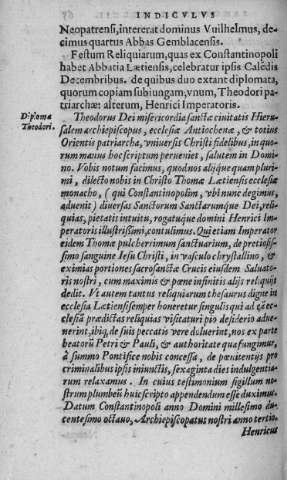 INDICVLVS
Neopatrensi, intererat dominus Vuilhelmus, de-
cimus quartus Abbas Gemblacensis.
Festum Reliquiarum, quas ex Constantinopoli
habet Abbatia Lætiensis, celebratur ipsis Calēdis
Decembribus. de quibus duo extant diplomata,
quorum copiam subiungam, vnum, Theodori pa-
triarchæ: alterum, Henrici Imperatoris.
Diploma
Theodori.
Theodorus Dei misericordia sancta ciuitatis Hieru-
salem archiepiscopus, ecclesiæ Antiochenæ, & totius
Orientis patriarcha, vniuersis Christi fidelibus, in quo-
rum manus hoc scriptum perueniet, salutem in Domi-
no. Vobis notum facimus, quod nos aliquequam pluri-
mi, dilecto nobis in Christo Thomæ Lætiensis ecclesiæ
monacho, (qui Constantinopolim, vbi nunc degimur,
aduenit) diuersas Sanctorum Sanctarumque Dei, reli-
quias, pietatis intuitu, rogatuque domini Henrici Im-
peratoris illustrissimi, contulimus. Qui etiam Imperator
eidem Thomæ pulcherrimum sanctuarium, de pretiosis-
simo sanguine Iesu Christi, in vasculo chrystallino, &
eximias portiones sacrosanctæ Crucis eiusdem Saluato-
ris nostri, cum maximis & pœne infinitis alijs reliquijs
dedit. Vt autem tantus reliquiarum thesaurus digne in
ecclesia Lætiensi semper honoretur singulis qui ad ec-
clesiā prædictas reliquias visitaturi pio desiderio adue-
nerint, ibiq, de suis peccatis vere doluerint, nos ex parte
beatorū Petri & Pauli, & authoritate qua fungimur,
à summo Pontifice nobis concessa, de pœnitentijs pro
criminalibus ipsis iniunctis, sexaginta dies indulgentia-
rum relaxamus. In cuius testimonium sigillum no-
strum plumbeū huic scripto appendendum esse duximus.
Datum Constantinopoli anno Domini millesimo du-
centesimo octauo, Archiepiscopatus nostri anno tertio.
Henricus